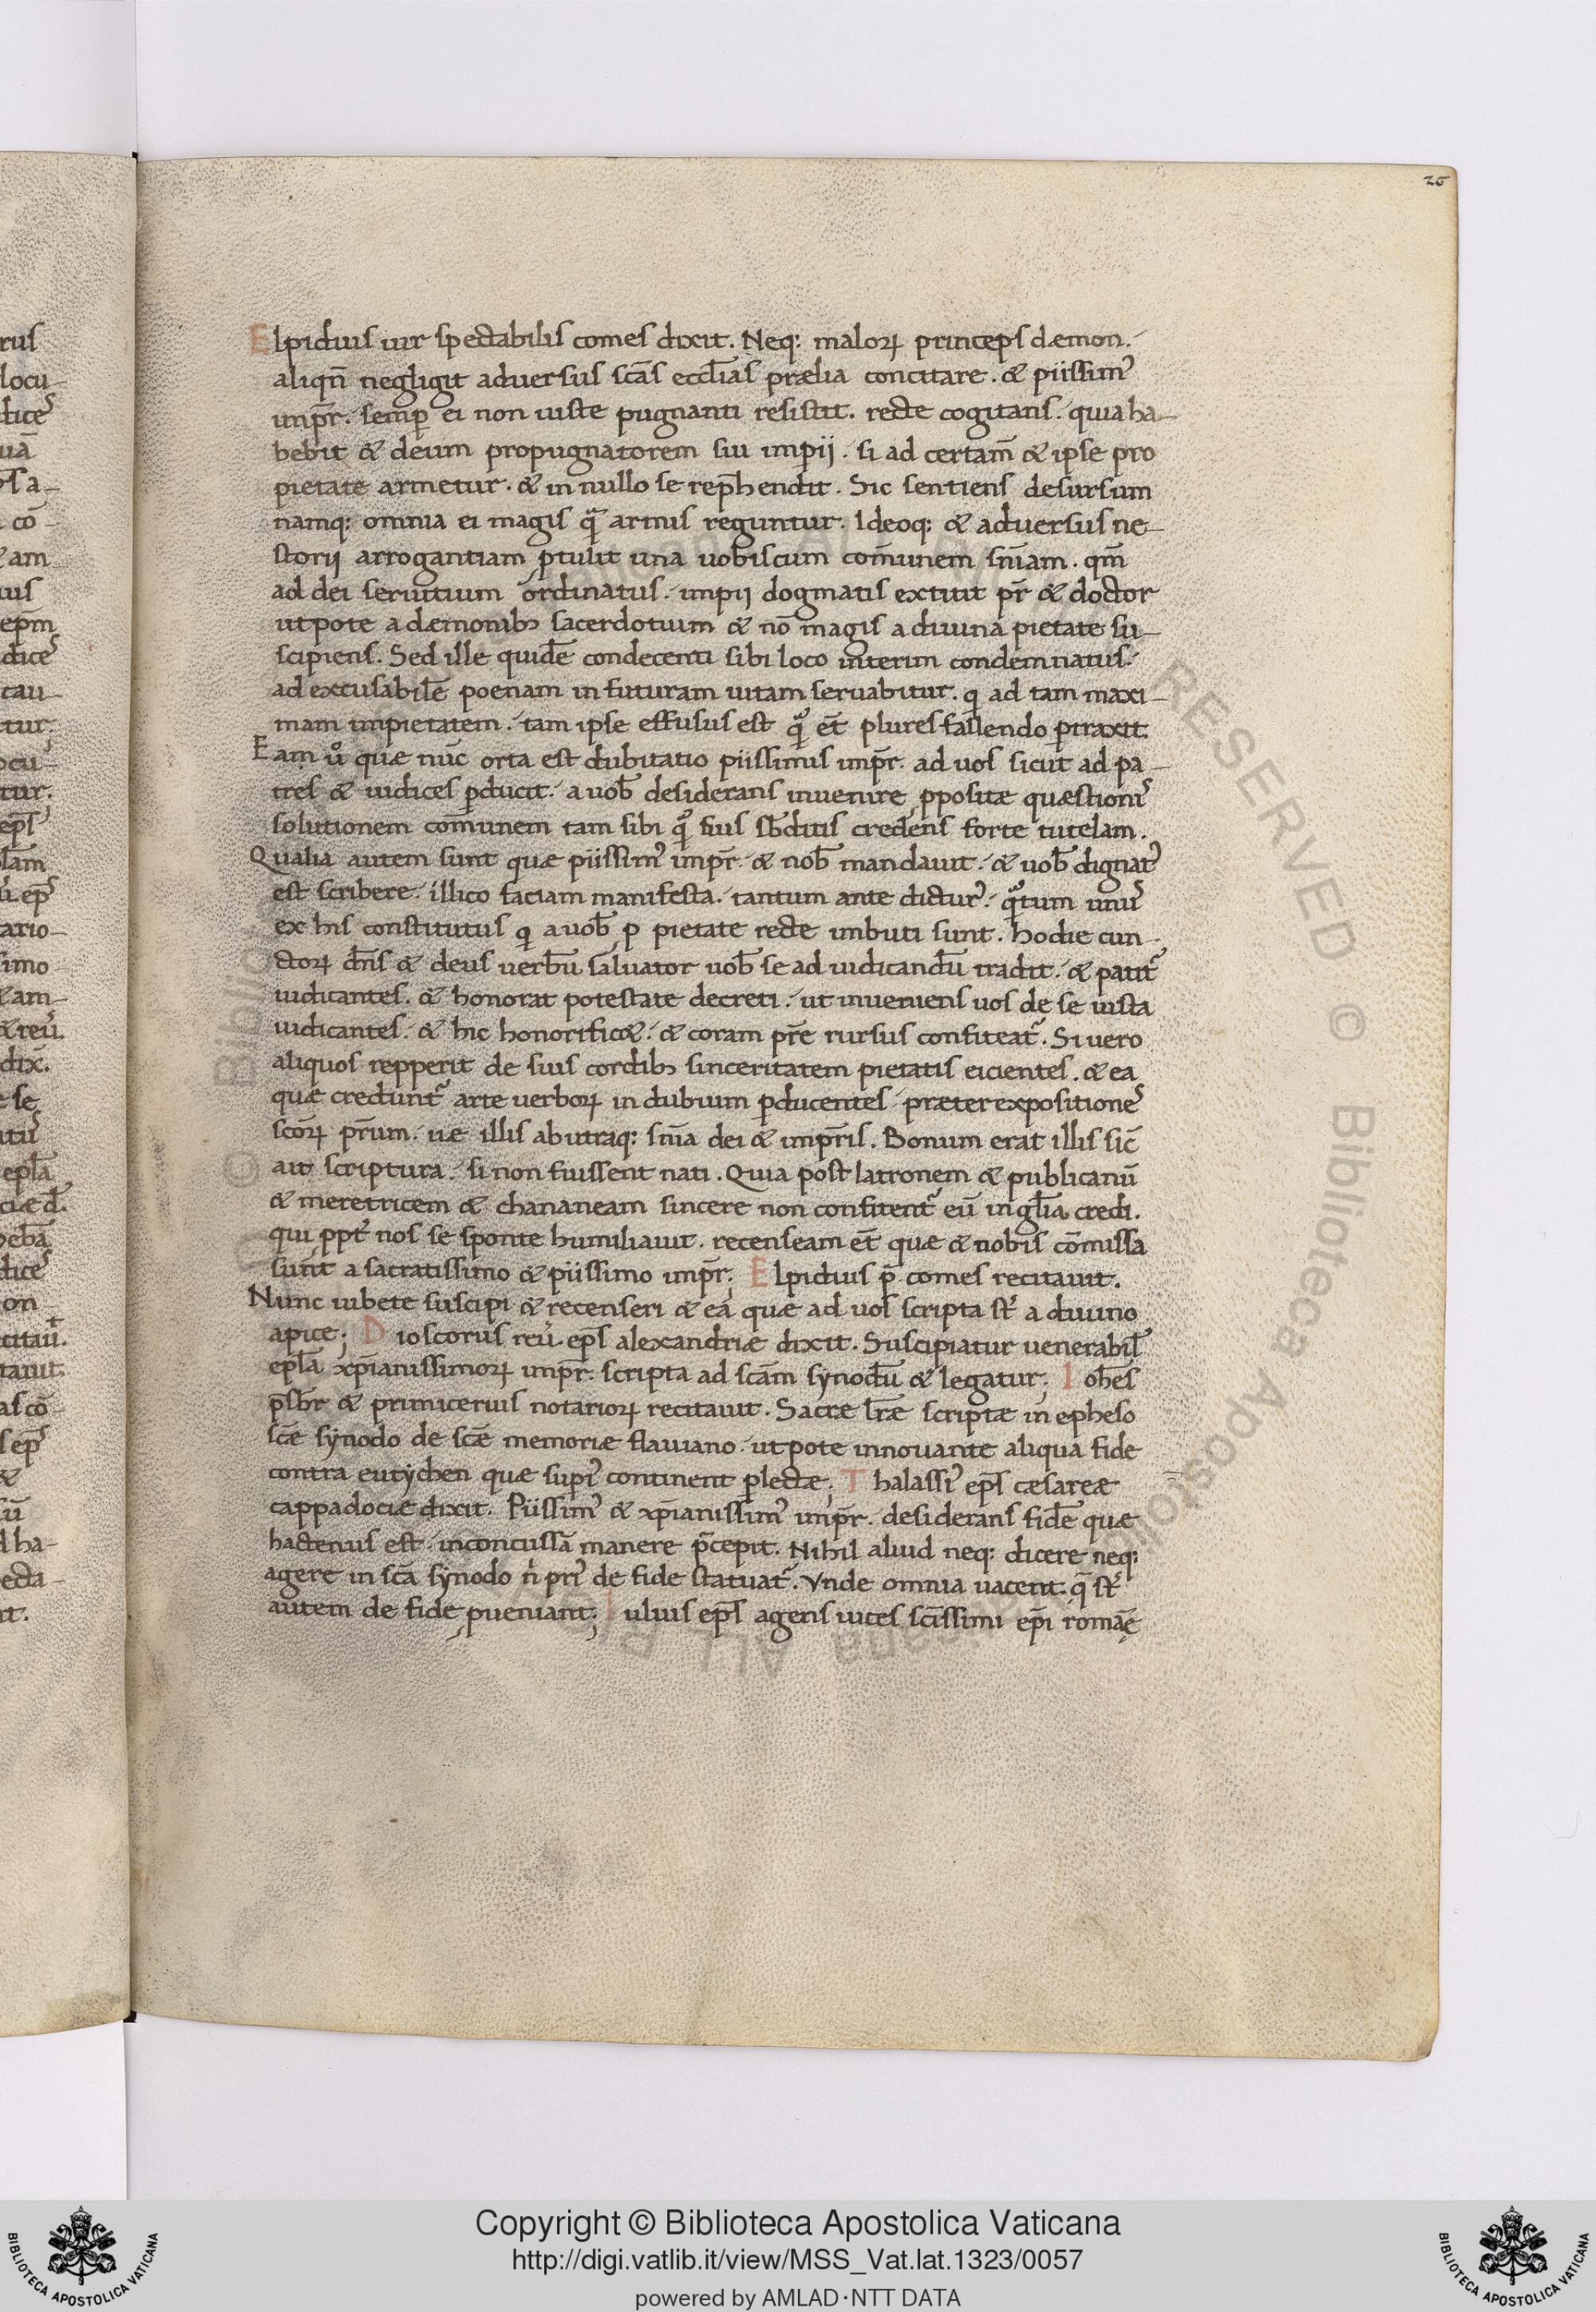 26
Elpidius uir spectabilis comes dixit. Neq: maloꝝ princeps dæmon.
aliqn̄ negligit aduersus scās eccl̄ias prælia concitare. & piissimꝰ
imp̄r. semꝑ ei non iuste pugnanti resistit. recte cogitans. quia ha-
bebit & deum propugnatorem sui imperii. si ad certam̄ & ipse pro
pietate armetur. & in nullo se rep̄hendit. Sic sentiens desursum
namq: omnia ei magis quā armis reguntur. Ideoq: & aduersus ne-
storii arrogantiam ꝑtulit una uobiscum com̄unem sn̄iam. qm̄
ad dei seruitium ordinatus. impii dogmatis extitit pr̄ & doctor
utpote a dæmonibꝫ sacerdotium & nō magis a diuina pietate su-
scipiens. Sed ille quidē condecenti sibi loco interim condemnatus.
ad excusabilē poenam in futuram uitam seruabitur. q ad tam maxi-
mam impietatem. tam ipse effusus est quā et̄ plures fallendo ꝑtraxit.
Eam uº quæ nūc orta est dubitatio piissimus imp̄r. ad uos sicut ad pa-
tres & iudices ꝑducit. a uob̄ desiderans inuenire ꝓpositæ quæstionis
solutionem com̄unem tam sibi qº suis sb̄ditis credens forte tutelam.
Qualia autem sunt quæ piissimꝰ imp̄r. & nob̄ mandauit. & uob̄ dignatꝰ
est scribere. illico faciam manifesta. tantum ante dicturꝰ. qºtum unus
ex his constitutus q a uob̄ ꝓ pietate recte imbuti sunt. hodie cun-
ctoꝝ dn̄s & deus uerbū saluator uob̄ se ad iudicandū tradit. & patit᷑
iudicantes. & honorat potestate decreti. ut inueniens uos de se iusta
iudicantes. & hic honorific&. & coram pr̄e rursus confiteat᷑. Si uero
aliquos repperit de suis cordibꝫ sinceritatem pietatis eicientes. & ea
quæ credunt᷑ arte uerboꝝ in dubium ꝑducentes præter expositionē
scōꝝ pr̄um. uæ illis ab utraq: sn̄ia dei & imp̄ris. Bonum erat illis sic̄
ait scriptura. si non fuissent nati. Quia post latronem & publicanū
& meretricem & chananeam sincere non confitent᷑ eū in gl̄ia credi.
qui ꝓpt̄ nos se sponte humiliauit. recenseam et̄ quæ & nobis cōmissa
sunt a sacratissimo & piissimo imp̄r; Elpidius p̄ comes recitauit.
Nunc iubete suscipi & recenseri & ea quæ ad uos scripta st̄ a diuino
apice; Dioscorus reū. ep̄s alexandriæ dixit. Suscipiatur uenerabil̄
epl̄a xp̄ianissimoꝝ imp̄r. scripta ad scām synodū & legatur; Ioh̄es
p̄sbr & primicerius notarioꝝ recitauit. Sacræ lr̄æ scriptæ in epheso
scē synodo de scē memoriæ flauiano. utpote innouante aliqua fide
contra eutychen quæ supꝰ continent ꝑlectæ; Thalassiꝰ ep̄s cæsareæ
cappadociæ dixit. Piissimꝰ & xp̄ianissimꝰ imp̄r. desiderans fidē quæ
hactenus est. inconcussā manere p̄cepit. Nihil aliud neq: dicere neq:
agere in scā synodo n̄ priꝰ de fide statuat᷑. Vnde omnia uacent. q̄ st̄
autem de fide ꝓueniant; Iulius ep̄s agens uices scīssimi ep̄i romāę
Copyright © Biblioteca Apostolica Vaticana
http://digi.vatlib.it/view/MSS_Vat.lat.1323/0057
powered by AMLAD·NTT DATA
BIBLIOTECA APOSTOLICA VATICANA
BIBLIOTECA APOSTOLICA VATICANA